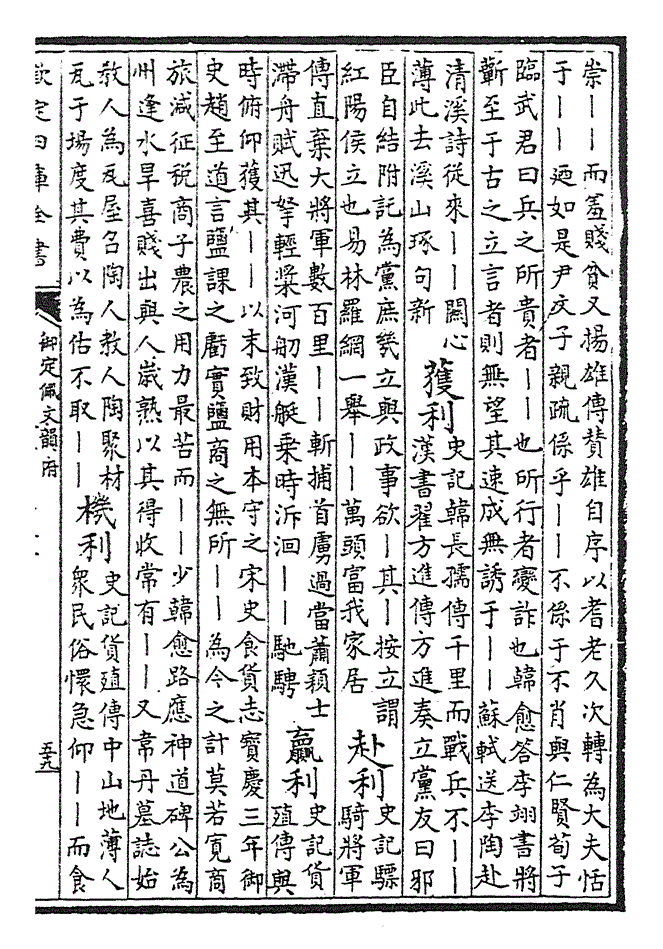 崇——而羞賤貧又揚雄傳贊雄自序以耆老久次轉為大夫恬
于——廼如是尹文子親疏係乎——不係于不肖與仁賢荀子
臨武君曰兵之所貴者——也所行者變詐也韓愈答李翊書將
蘄至于古之立言者則無望其速成無誘于——蘇軾送李陶赴
清溪詩從來——闗心
薄此去溪山琢句新
獲利
史記韓長孺傳千里而戰兵不——
漢書翟方進傳方進奏立黨友曰邪
臣自結附託為黨庶幾立與政事欲—其—按立謂
紅陽侯立也易林羅網一舉——萬頭富我家居
赴利
史記驃
騎將軍
傳直棄大將軍數百里——斬捕首虜過當蕭穎士
滯舟賦迅拏輕槳河舠漢艇乗時泝洄——馳騁
贏利
史記貨
殖傳與
時俯仰獲其——以末致財用本守之宋史食貨志寶慶三年御
史趙至道言鹽課之虧實鹽商之無所——為今之計莫若寛商
旅減征税商子農之用力最苦而——少韓愈路應神道碑公為
州逢水旱喜賤出與人嵗熟以其得收常有——又韋丹墓誌始
教人為瓦屋召陶人教人陶聚材
瓦于場度其費以為估不取——
機利
史記貨殖傳中山地薄人
衆民俗懁急仰——而食
欽定四庫全書
御定佩文韻府
五九